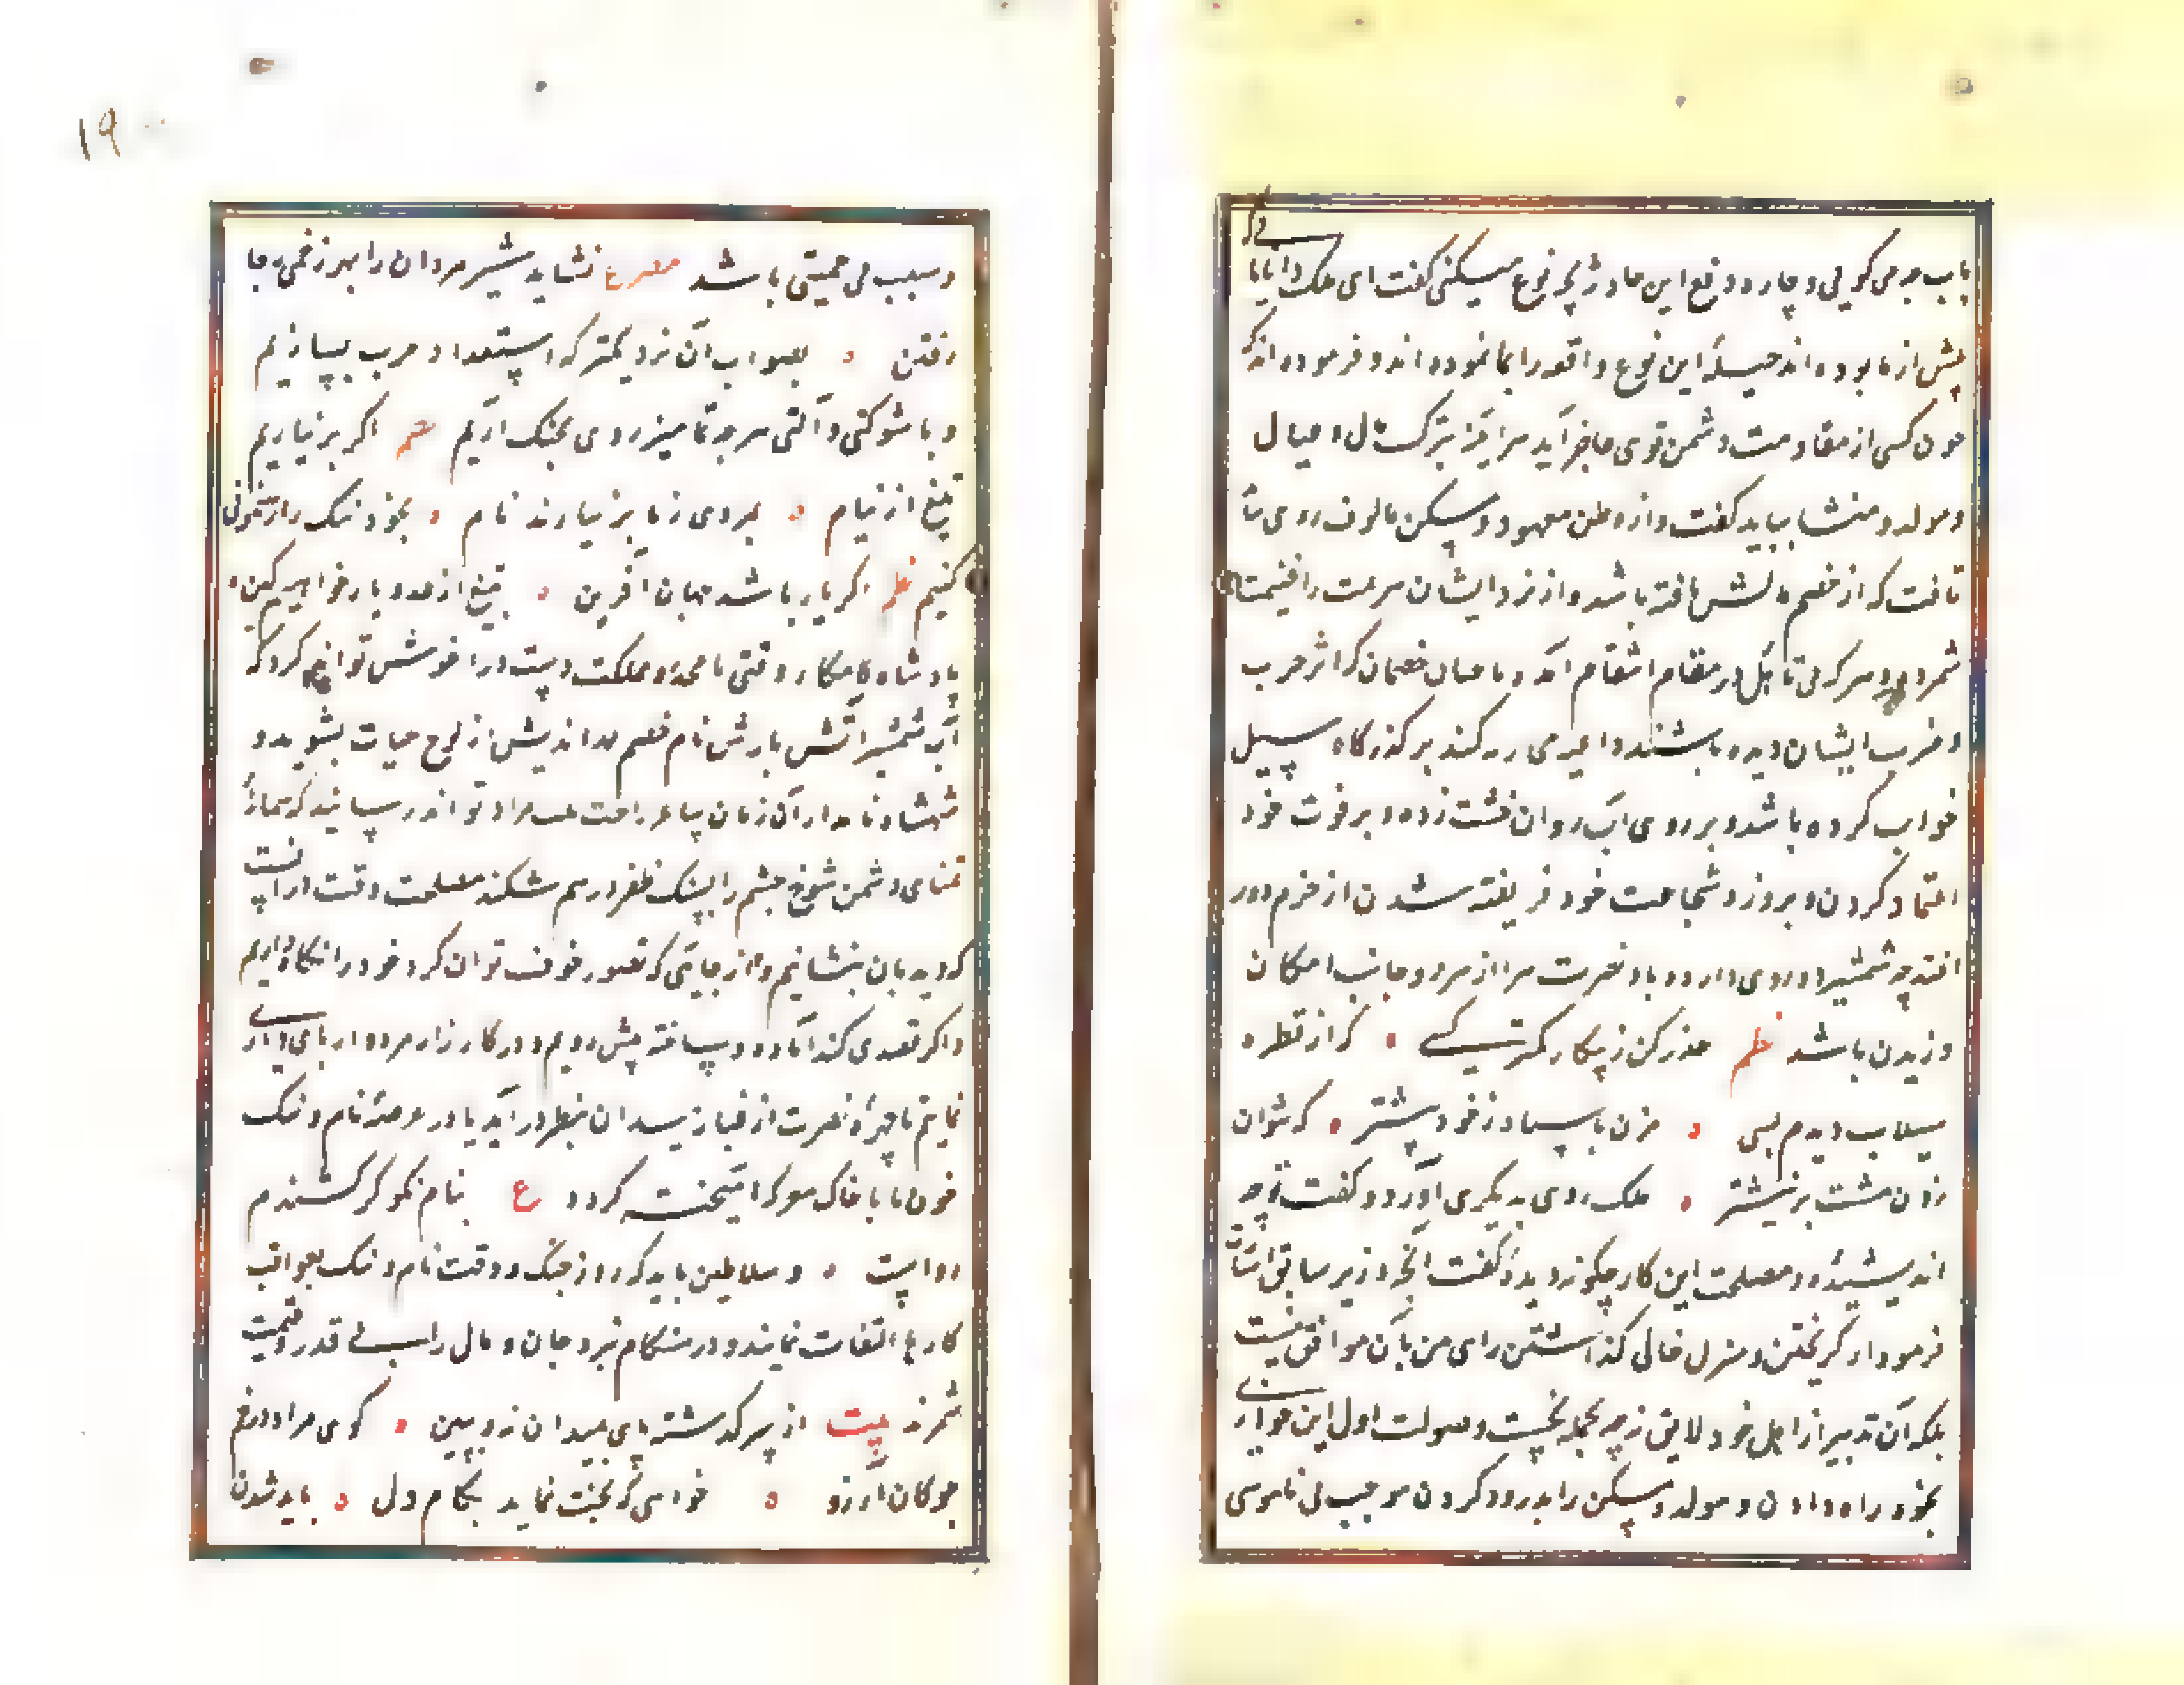 باب چه می کویی و چاره دفع این حادثه بچه نوع میکنی کفت ای ملک دانایانی که
پیش از ما بوده اند حیلهٔ این نوع واقعه را بما نموده اند و فرموده اند که
چون کسی از مقاومت دشمن قوی عاجز آید هراینه بترک مال و عیال
و مولد و منشا بباید کفت و از وطن معهود و مسکن مالوف روی بتا
تافت که از خصم مالش یافته باشد و از نزد ایشان سرعت را غنیمت
شمرد و هر که بی تامل در مقام انتقام آمد و با چنان خصمان که اثر حرب
و ضرب ایشان دیده باشند دلیری کند بر کذرکاه سیل
خواب کرده باشد و بر روی آب روان خشت زده و بر قوت خود
اعتماد کردن و بزور و شجاعت خود فریفته شدن از حزم دور
افتد چه شمشیر دو روی دارد و باد نصرت را از هر دو جانب امکان
وزیدن باشد نظم حذر کن ز پیکار کمتر کسی ه که از قطره
سیلاب دیدم بسی ه مزن با سپاه ز خود بیشتر ه که نتوان
زدن مشت بر نیشتر ه ملک روی بدیکری آورد و کفت تو چه
اندیشیدهٔ و مصلحت این کار چکونه دیدهٔ کفت آنچه وزیر سابق اشارت
فرمود از کریختن و منزل خالی کذاشتن رای من بآن موافق نیست
بلکه آن تدبیر از اهل خرد لایق نه چه بحمله نخست و صولت اول این خواری
بخود راه دادن و مولد و مسکن را بدرود کردن موجب بی ناموسی
۱۹
و سبب بی حمیتی باشد مصرع نشاید شیر مردان را بهر زخمی ز جا
رفتن ه بصواب آن نزدیکتر که استعداد حرب بسازیم
و با شوکتی و آلتی هر چه تمامتر روی بجنک آریم نظم اکر بر نیاریم
تیغ از نیام ه بمردی ز ما بر نیارند نام ه بخود ننک را رهنمونی
کنیم نظم اکر یار باشد جهان آفرین ه بتیغ از عدو باز خواهیم کین ه
پادشاه کامکار وقتی با مخدره مملکت دست در آغوش تواند کرد که
آب شمشیر آتش بارش نام خصم بداندیش از لوح حیات بشوید و
شهنشاه نامدار آن زمان پیاغر راحت بلب مراد تواند رسانید که پیمانهٔ
تمنای دشمن شوخ چشم را بسنک ظفر درهم شکند مصلحت وقت در آنست
که دیدبان بنشانیم و از هر جایی که تصور خوف توان کرد خود را نکاه داریم
و اکر قصدی کنند آماده و ساخته پیش رویم و در کارزار مردوار پای داری
نمایم تا چهرهٔ نصرت از غبار میدان بنظر در آید یا در عرصهٔ نام و ننک
خون ما با خاک معرکه آمیخته کردد ع بنام نکو کر کشندم
رواست ه و سلاطین باید که روز جنک و وقت نام و ننک بعواقب
کارها التفات نمایند و در هنکام نبرد جان و مال را بی قدر و قیمت
شمرند بیت از سر کذشته پای بمیدان نه و ببین ه کوی مراد در خم
چوکان آرزو ه خواهی که بخت نماید بکام دل ه باید شدن